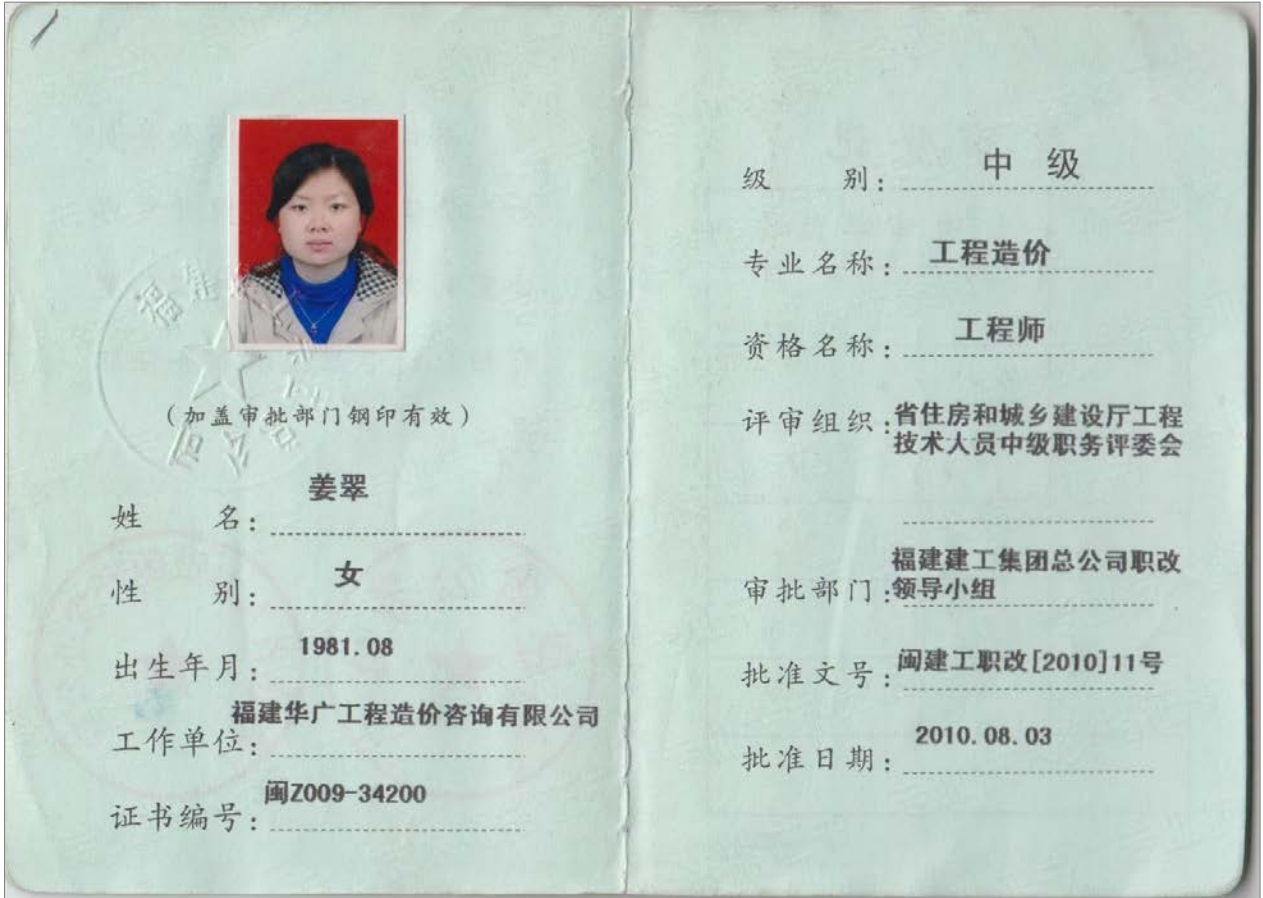 (加盖审批部门钢印有效)
姓 名: 姜翠
性 别: 女
出生年月: 1981.08
工作单位: 福建华广工程造价咨询有限公司
证书编号: 闽Z009-34200
级 别: 中 级
专业名称: 工程造价
资格名称: 工程师
评审组织: 省住房和城乡建设厅工程
技术人员中级职务评委会
审批部门: 福建建工集团总公司职改
领导小组
批准文号: 闽建工职改[2010]11号
批准日期: 2010.08.03